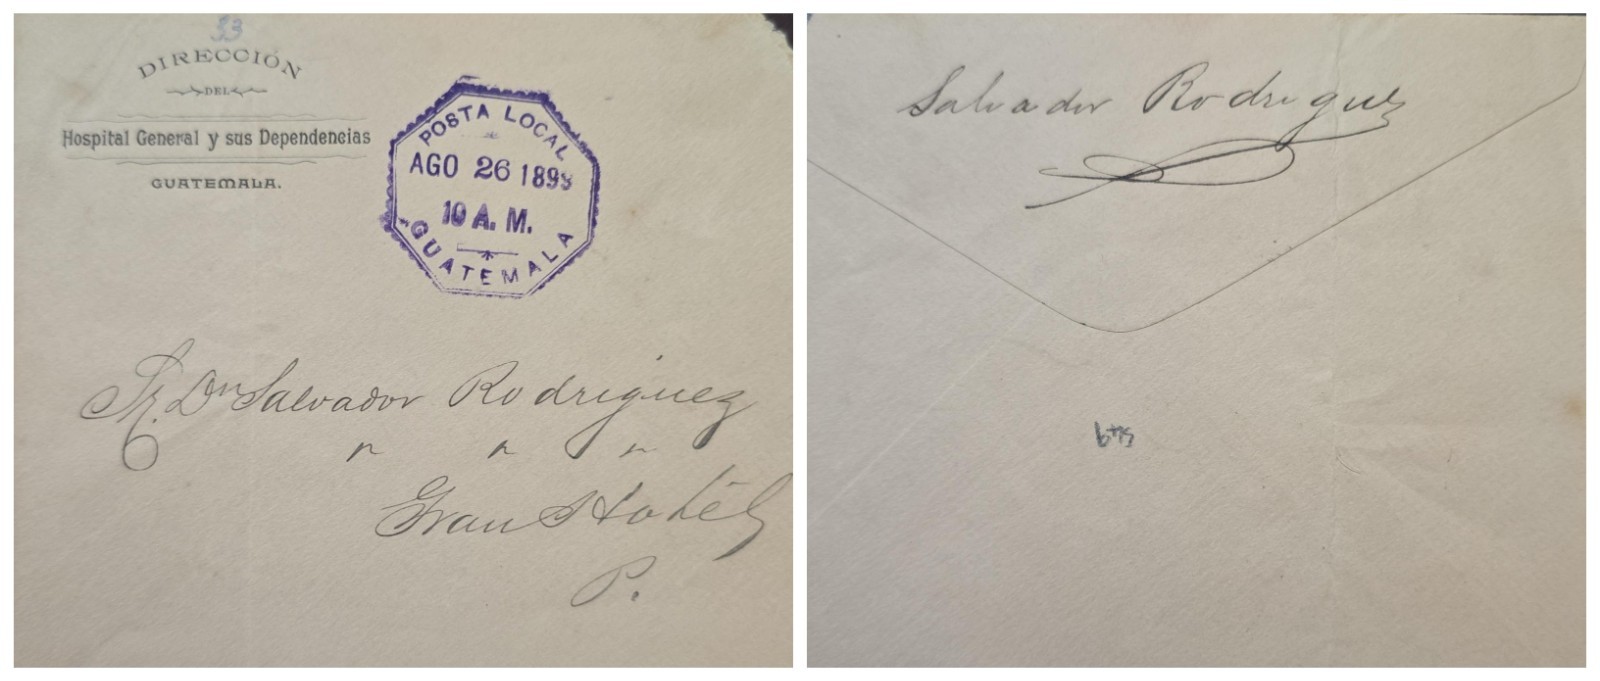 33
DIRECCIÓN
DEL
Hospital General y sus Dependencias
GUATEMALA.
POSTA LOCAL
AGO 26 1898
10 A. M.
GUATEMALA
Sr. Dn Salvador Rodriguez
Gran Hotel
P.
Salvador Rodriguez